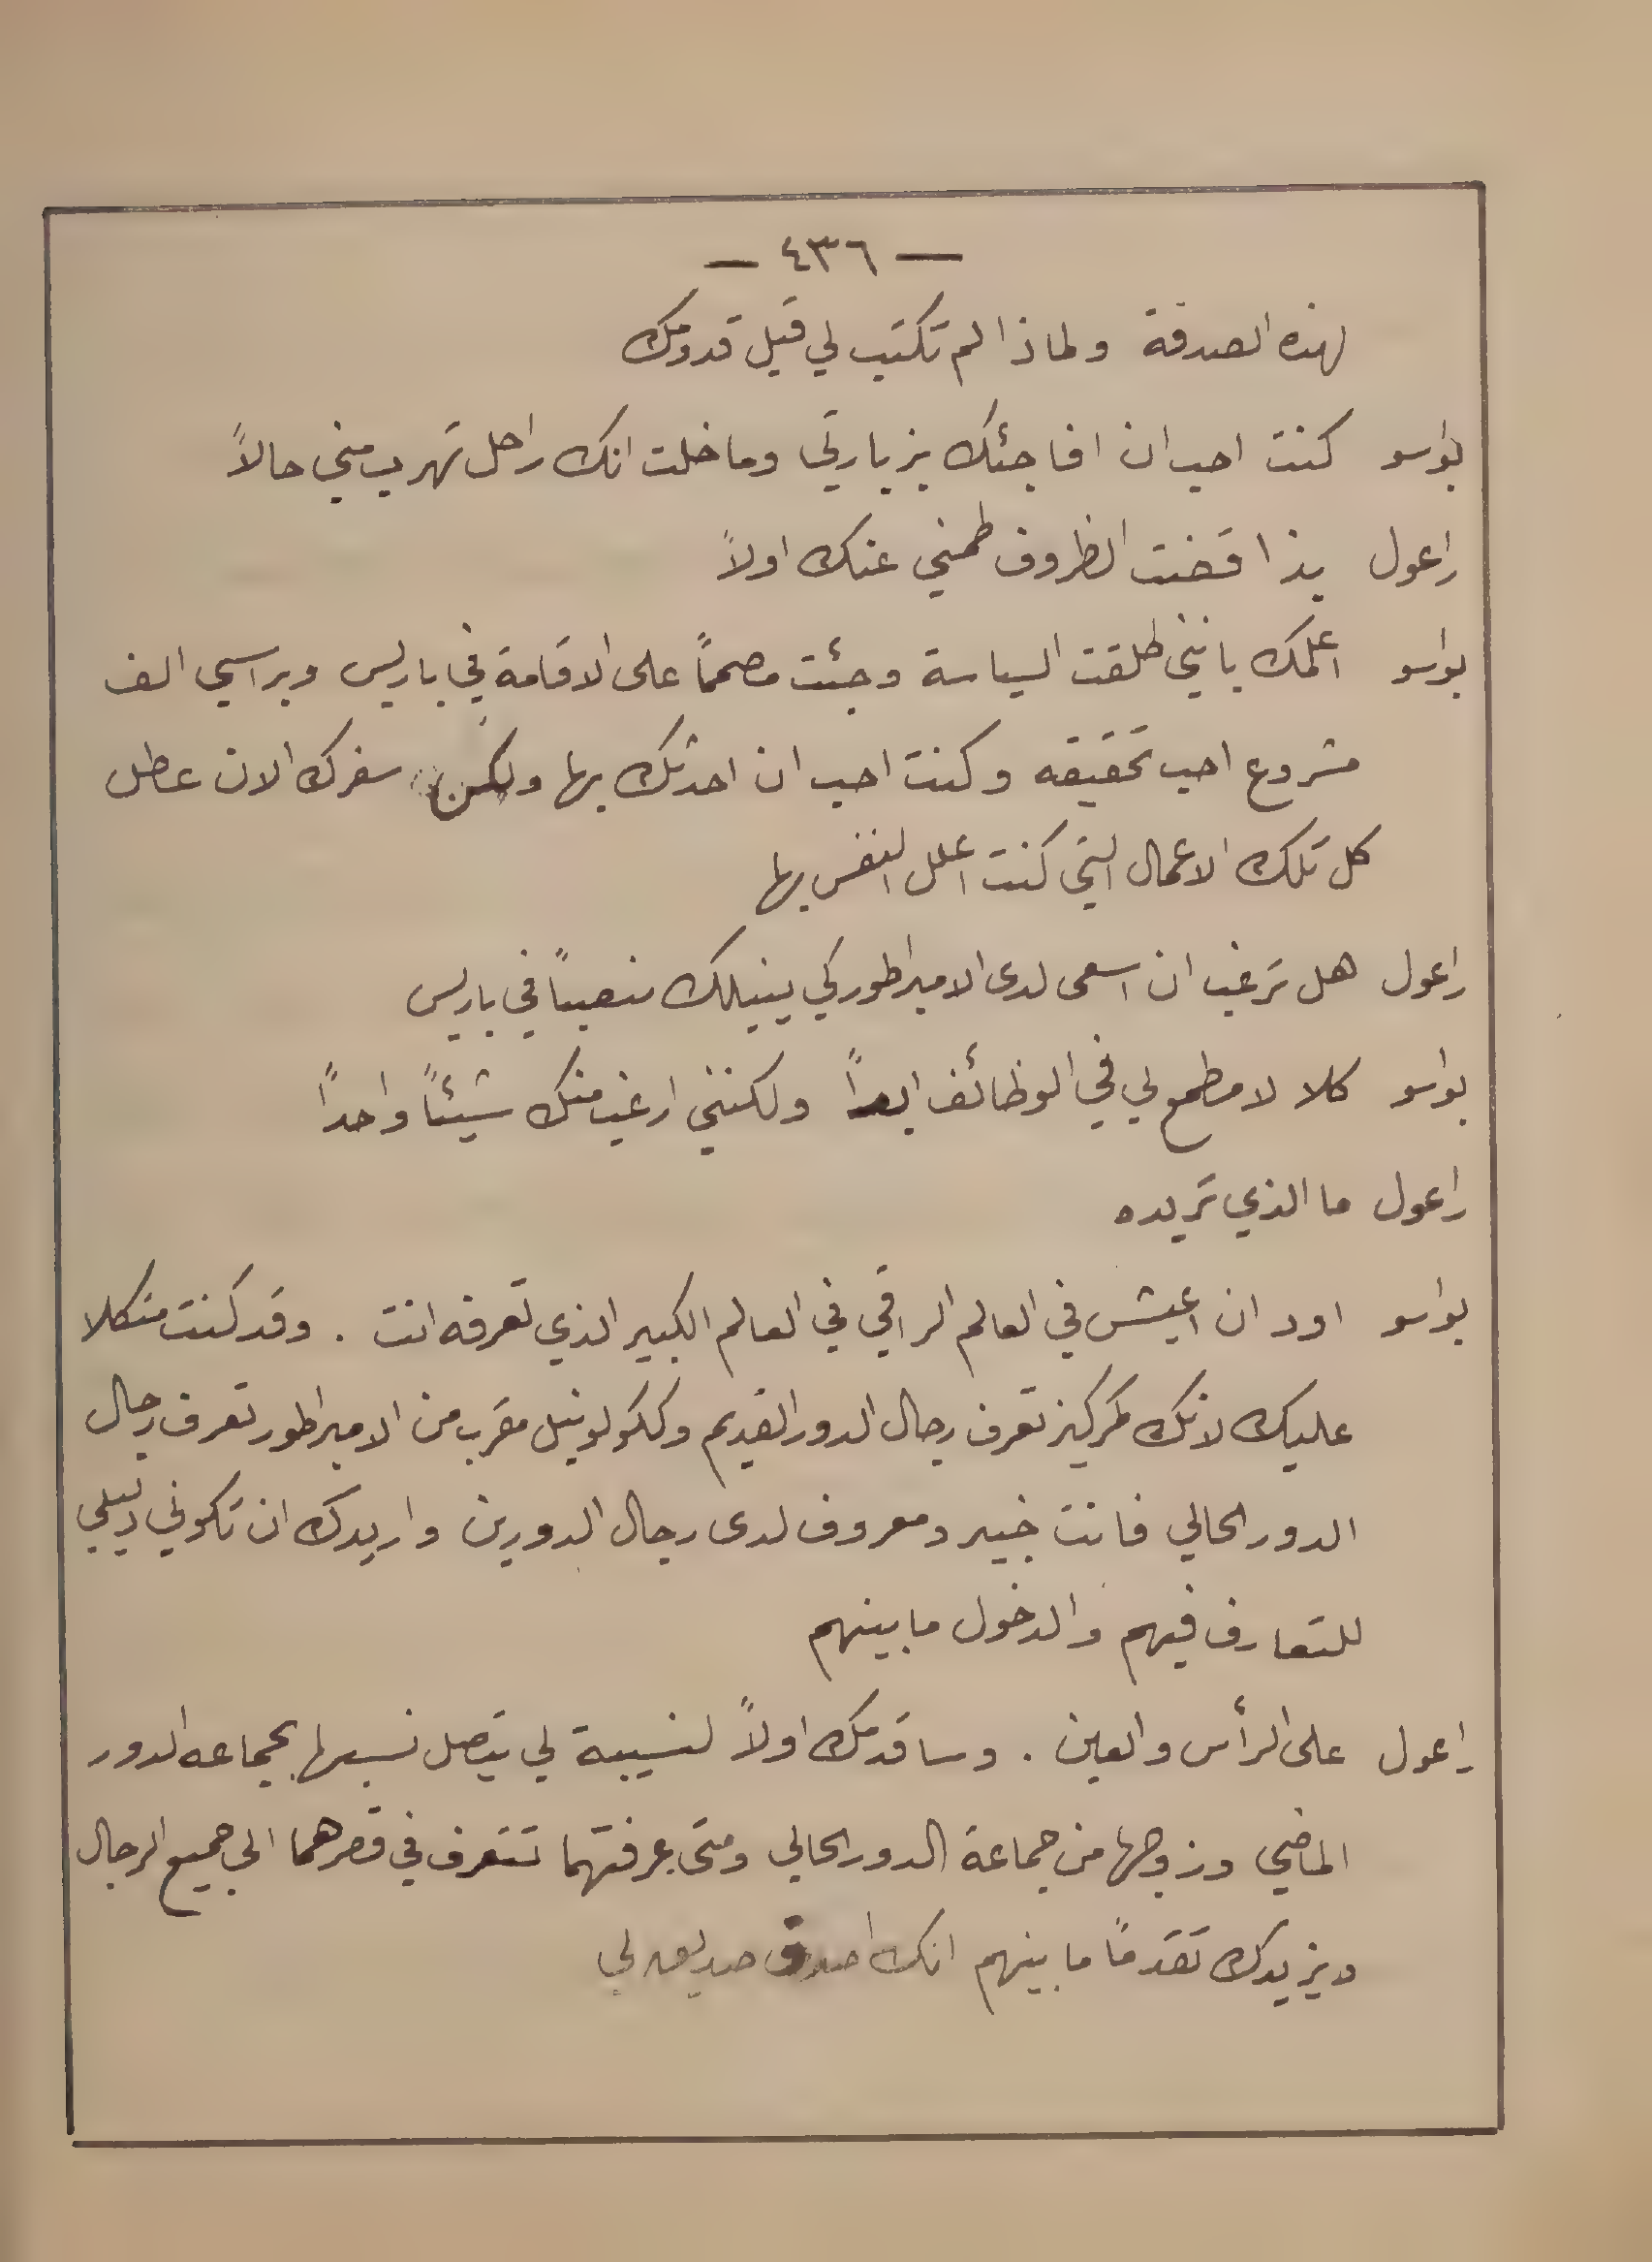 — ٤٣٦ —
لهذه الصدفة ولماذا لم تكتب لي قبل قدومك
بواسو كنت احب ان افاجئك بزيارتي وما خلت انك راحل تهرب مني حالاً
راعول بذا قضت الظروف طمني عنك اولاً
بواسو اعلمك بانني طلقت السياسة وجئت مصمماً على الاقامة في باريس وبراسي الف
مشروع احب تحقيقه وكنت احب ان احدثك بها ولكن سفرك الان عطل
كل تلك الاعمال التي كنت اعلل النفس بها
راعول هل ترغب ان اسعى لدى الامبراطور كي ينيلك منصباً في باريس
بواسو كلا لا مطمع لي في الوظائف ابداً ولكنني ارغب منك شيئاً واحداً
راعول ما الذي تريده
بواسو اود ان اعيش في العالم الراقي في العالم الكبير الذي تعرفه انت . وقد كنت متكلا
عليك لانك كمركيز تعرف رجال الدور القديم وككولونيل مقرب من الامبراطور تعرف رجال
الدور الحالي فانت خبير ومعروف لدى رجال الدورين واريدك ان تكوني دليلي
للتعارف فيهم والدخول ما بينهم
راعول على الرأس والعين . وساقدمك اولاً لنسيبة لي يتصل نسبها بجماعه الدور
الماضي وزوجها من جماعة الدور الحالي ومتى عرفتهما تتعرف في قصرهما الى جميع الرجال
ويزيدك تقدماً ما بينهم انك اصدق صديق لي